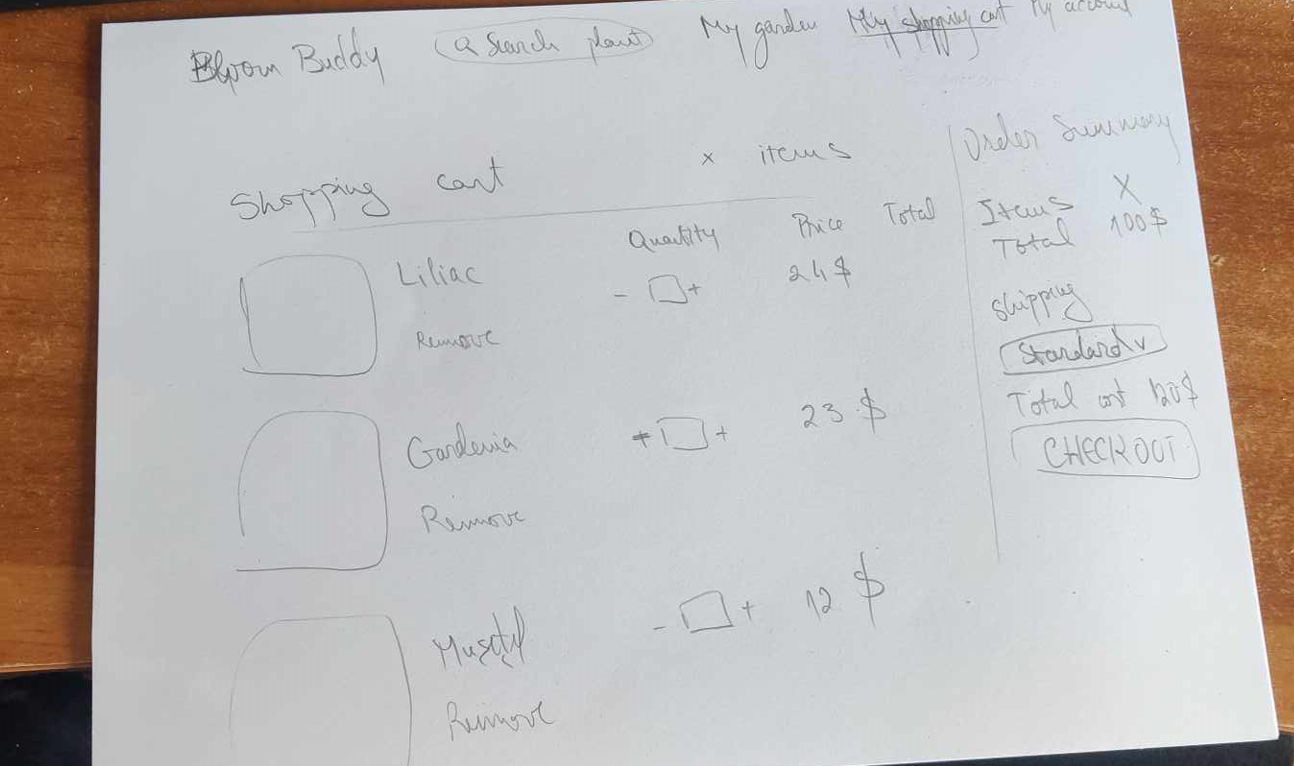 Bloom Buddy Search plant My garden My shopping cart My account
Shopping cart x items
Quantity Price Total
Liliac - + 24$
Remove
Gardenia + 23 $
Remove
- + 12 $
Remove
Order Summary
Items X
Total 100$
shipping
Standard v
Total cost 120$
CHECKOUT